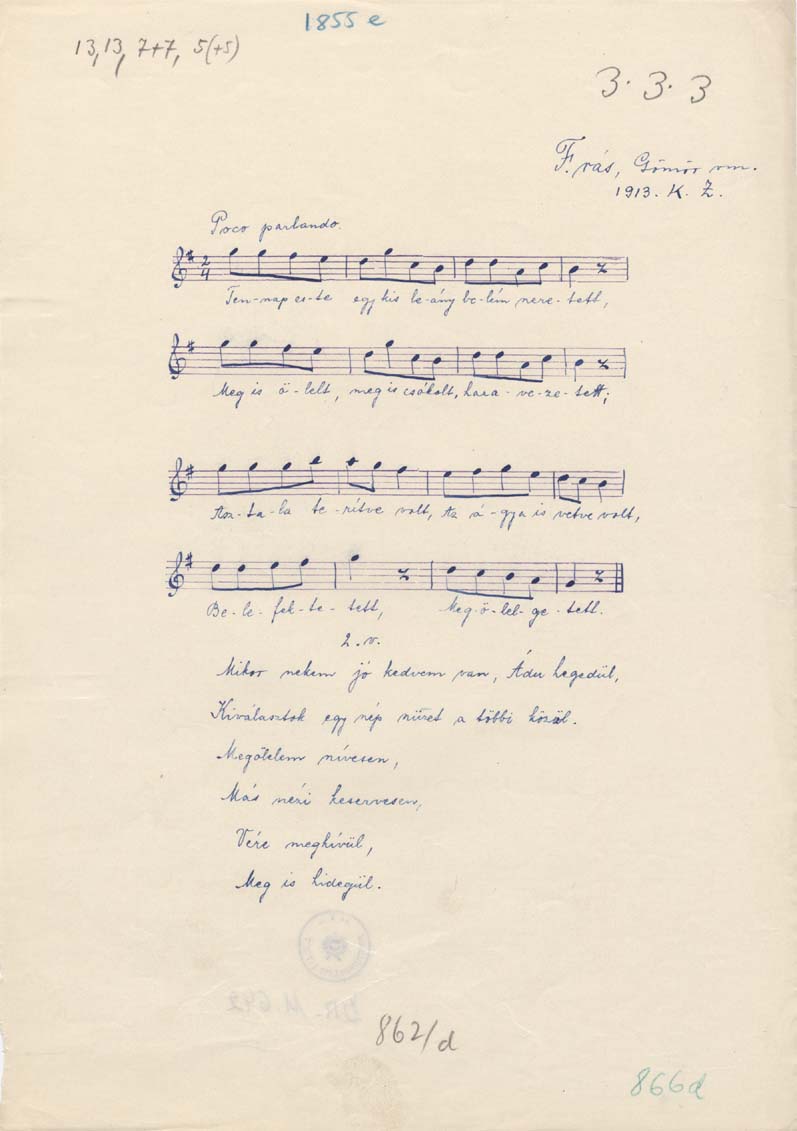 1855 e
13,13, 7+7, 5(+5)
3. 3. 3
Frás, Gömör vm.
1913. K. Z.
Poco parlando.
Ten-nap es-te egy kis le-ány be-lém sere-tett,
Meg is ö-lelt, meg is csókolt, haza-ve-ze-tett;
Asz-ta-la te-rítve volt, Az á-gya is vetve volt,
Be-le-fek-te-tett, Meg-ö-lel-ge-tett.
2. v.
Mikor nekem jó kedvem van, Ádu hegedül,
Kiválasztok egy szép szüzet a többi közül.
Megölelem szívesen,
Más nézi keservesen,
Vére meghívül,
Meg is hidegül.
862/d
866d